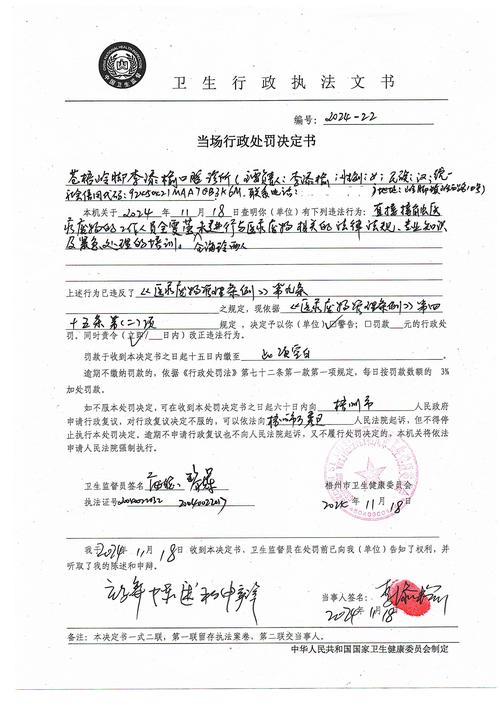 中国卫生监督
卫生行政执法文书
编号：2024-22
当场行政处罚决定书
苍梧岭脚李添榆口腔诊所（经营者：李添榆，性别：女，民族：汉，统一
社会信用代码：92450421MAA7GB3K6M，联系电话： ）地址：岭脚镇
本机关于 2024 年 11 月 18 日查明你（单位）有下列违法行为：直接接触医
疗废物的工作人员 未进行与医疗废物相关的法律法规、专业知识
及紧急处理的培训。
上述行为已违反了《医疗废物管理条例》第九条
之规定，现依据《医疗废物管理条例》第四
十五条第（二）项 规定，决定予以你（单位）☑警告；☐罚款 元的行政处
罚。同时责令（立即/ 日内）改正违法行为。
罚款于收到本决定书之日起十五日内缴至 此项空白
逾期不缴纳罚款的，依据《行政处罚法》第七十二条第一款第一项规定，每日按罚款数额的 3%
加处罚款。
如不服本处罚决定，可在收到本处罚决定书之日起六十日内向 梧州市 人民政府
申请行政复议，对行政复议决定不服的，可以依法向 梧州市万秀区 人民法院起诉，但不得停
止执行本处罚决定。逾期不申请行政复议也不向人民法院起诉，又不履行处罚决定的，本机关将依法
申请人民法院强制执行。
卫生监督员签名
执法证号
梧州市卫生健康委员会
2024 年 11 月 18 日
我于 2024 年 11 月 18 日收到本决定书，卫生监督员在处罚前已向我（单位）告知了权利，并
听取了我的陈述和申辩。
当事人签名：李添榆
2024 年 11 月 18 日
备注：本决定书一式二联，第一联留存执法案卷，第二联交当事人。
中华人民共和国国家卫生健康委员会制定